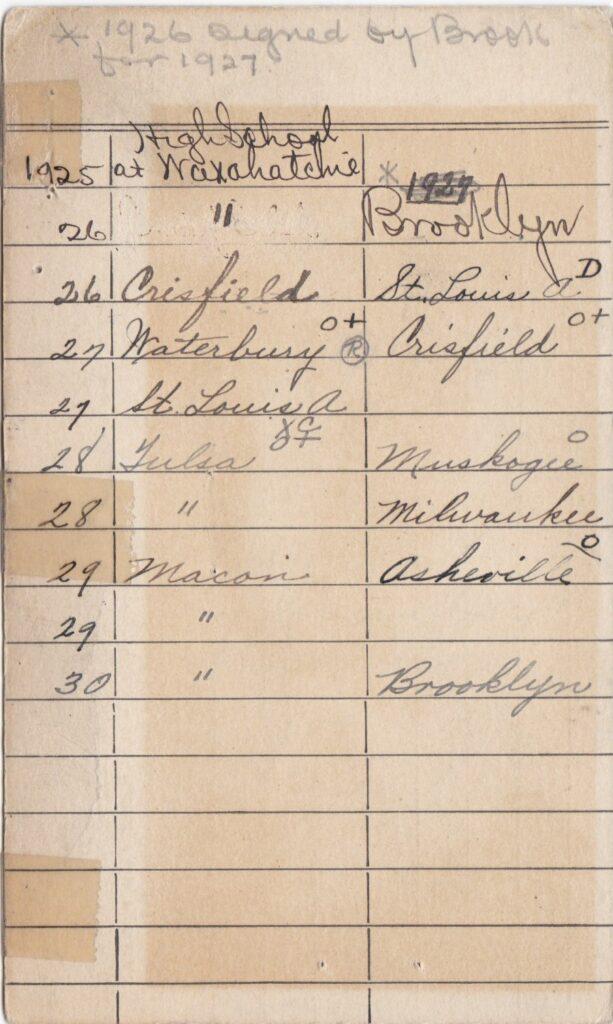 * 1926 signed by Brook
for 1927
High School
1925 at Waxahatchie * 1927
26 " Brooklyn
26 Crisfield St. Louis A D
27 Waterbury O+ R Crisfield O+
27 St. Louis A
28 Tulsa Muskogee O
28 " Milwaukee
29 Macon Asheville O
29 "
30 " Brooklyn